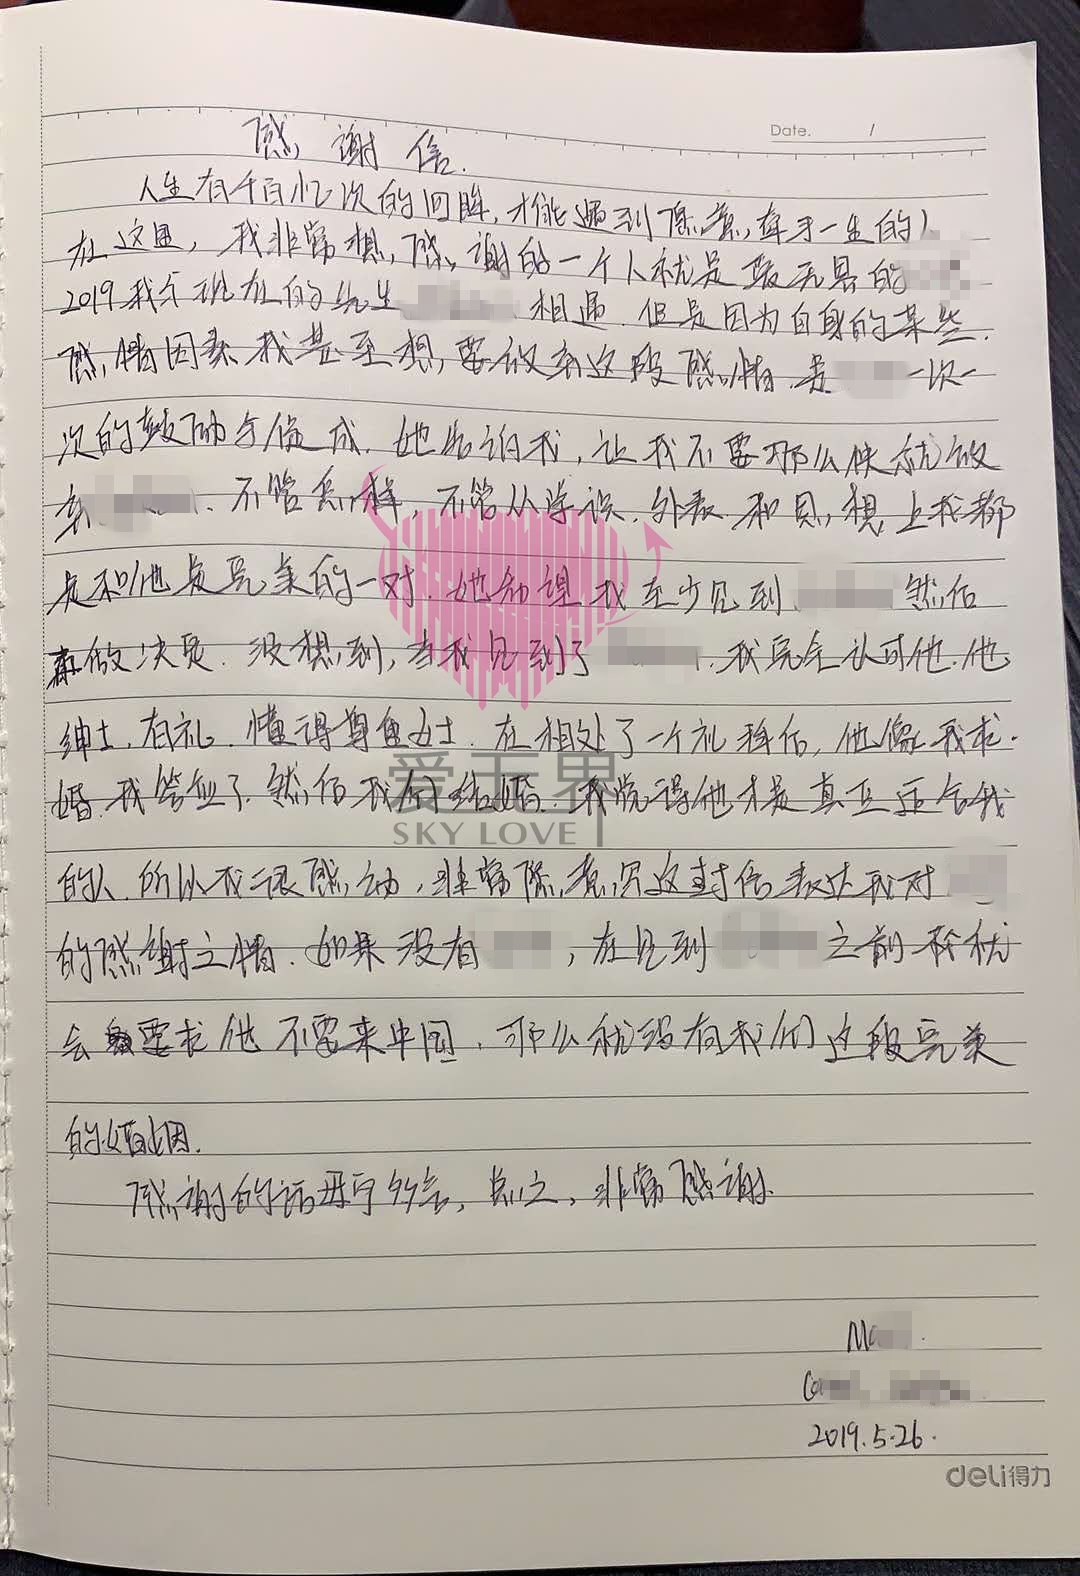 Date. /
感谢信.
人生有千百亿次的回眸,才能遇到愿意,牵手一生的人
在这里,我非常想,感谢的一个人就是爱无界的
2019我与现在的先生 相遇.但是因为自身的某些.
感情因素.我甚至想,要放弃这段感情. 一次一
次的鼓励与促成.她告诉我,让我不要那么快就放
弃 .不管怎样,不管从学识.外表.和思想上我都
是和他是完美的一对.她劝望我至少见到 然后
再做决定.没想到,当我见到了 .我完全认可他.他
绅士.有礼.懂得尊重女士.在相处了一个礼拜后,他像我求.
婚.我答应了.然后我们结婚.我觉得他才是真正适合我
的人.所以我很感动,非常愿意,写这封信表达我对
的感谢之情.如果没有 ,在见到 之前我就
会要求他不要来中国.那么就没有我们这段完美
的婚姻.
感谢的话 ,总之,非常感谢.
爱无界
SKY LOVE
2019.5.26.
deli得力